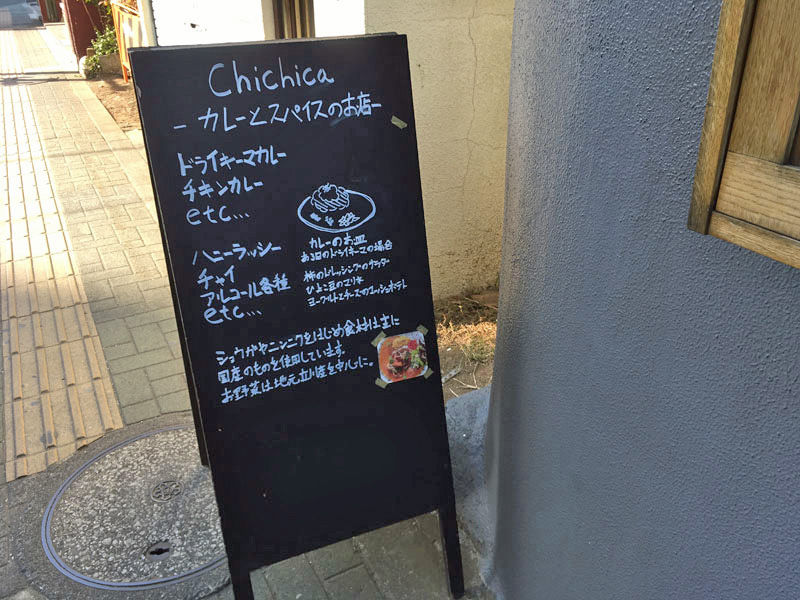 Chichica
- カレーとスパイスのお店-
ドライキーマカレー
チキンカレー
etc...
ハニーラッシー
チャイ
アルコール各種
etc...
カレーのお皿
ある日のドライキーマの場合
柿のドレッシングのサラダ
ひよこ豆のマリネ
ヨーグルトとチーズのマッシュポテト
ショウガやニンニクをはじめ食材は主に
国産のものを使用しています。
お野菜は地元立川産を中心に。